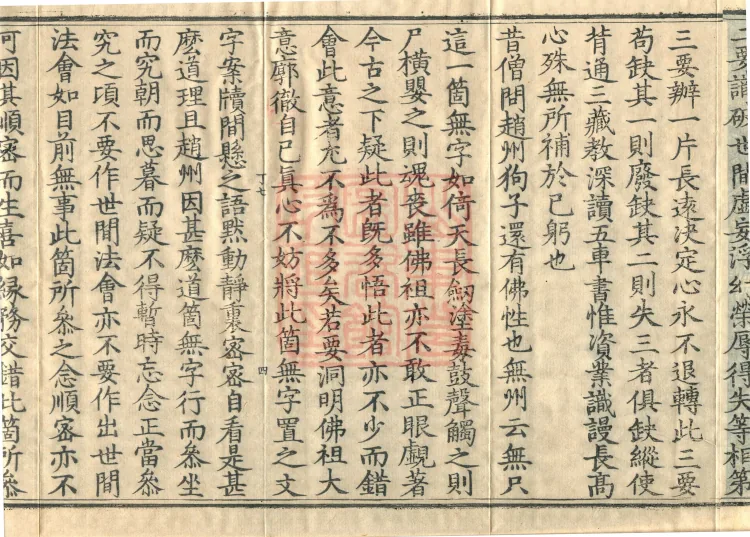 二要諳破世間虛妄浮幻榮辱得失等相第
三要辦一片長遠決定心永不退轉此三要
苟缺其一則廢缺其二則失三者俱缺縱使
背通三藏教深讀五車書惟資業識謾長高
心殊無所補於己躬也
昔僧問趙州狗子還有佛性也無州云無只
這一箇無字如倚天長劒塗毒鼓聲觸之則
尸橫嬰之則魂喪雖佛祖亦不敢正眼覷著
今古之下疑此者旣多悟此者亦不少而錯
會此意者尤不爲不多矣若要洞明佛祖大
意廓徹自己眞心不妨將此箇無字置之文
丁七
四
字案牘間懸之語默動靜裏密密自看是甚
麽道理且趙州因甚麽道箇無字行而叅坐
而究朝而思暮而疑不得暫時忘念正當叅
究之頃不要作世間法會亦不要作出世間
法會如目前無事此箇所叅之念順密亦不
可因其順密而生喜如緣務交錯此箇所叅